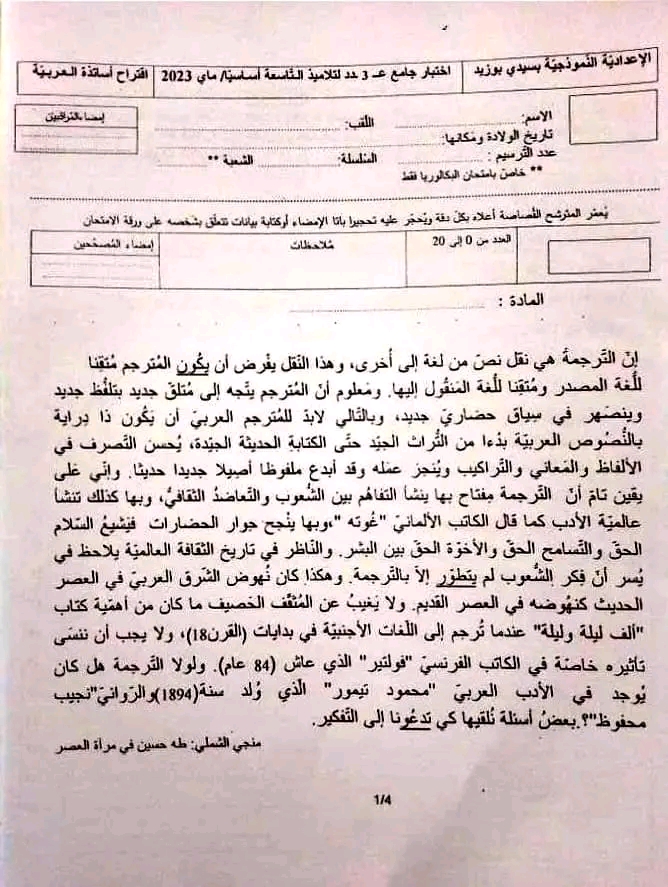 الإعداديّة النّموذجيّة بسيدي بوزيد
اختبار جامع عـ 3 ـدد لتلاميذ التّاسعة أساسيّا/ ماي 2023
اقتراح أساتذة العربيّة
الاسم: اللّقب:
تاريخ الولادة ومكانها:
عدد التّرسيم : السّلسلة: الشعبة **
** خاصّ بامتحان البكالوريا فقط
إمضاء المُراقبين
يُعمّر المترشّح القُصاصة أعلاه بكلّ دقة ويُحجّر عليه تحجيرا باتا الإمضاء أوكتابة بيانات تتعلّق بشخصه على ورقة الامتحان
العدد من 0 إلى 20
مُلاحظات
إمضاء المُصحّحين
المادة :
إنّ التَّرجمةُ هي نقل نصّ من لغة إلى أخرى، وهذا النّقل يفْرض أن يكُون المُترجم مُتقِنا
للُّغة المصدر ومُتقِنا للُّغة المَنقول إليها. ومَعلوم أنّ المُترجم يتّجه إلى مُتلقّ جديد بتلفّظ جديد
وينصَهر في سِياق حضاريّ جديد، وبالتّالي لابدّ للمُترجم العربيّ أن يكُون ذا دِراية
بالنُّصُوص العربيّة بدْءا من التُّراث الجيّد حتّى الكتابةِ الحديثة الجيّدة، يُحسن التّصرف في
الألفاظ والمَعاني والتَّراكيب ويُنجز عمَله وقد أبدعَ ملفوظا أصِيلا جديدا حديثا. وإنّي عَلى
يقين تامّ أنّ التّرجمة مِفتاح بها ينشأ التفاهُم بين الشُّعوب والتَّعاضدُ الثقافيُّ، وبها كذلك تنشأ
عالميّة الأدب كما قال الكاتب الألمانيّ "غُوته "،وبها ينْجح جوار الحضارات فيَشيعُ السّلام
الحقّ والتَّسامح الحقّ والأخوّة الحقّ بين البشر. والنّاظر في تاريخ الثقافة العالميّة يلاحظ في
يُسر أنّ فِكر الشُّعوب لم يتطوّر إلاّ بالتّرجمة. وهكذا كان نُهوض الشّرق العربيّ في العصر
الحديث كنهُوضه في العصر القديم. ولا يَغيبُ عن المُثقّف الحَصيف ما كان من أهمّية كتاب
"ألف ليلة وليلة" عندما تُرجم إلى اللّغات الأجنبيّة في بدايات (القرن18)، ولا يجب أن ننسَى
تأثيره خاصّة في الكاتب الفرنسيّ "فولتير" الذي عاش (84 عام). ولولا التّرجمة هل كان
يُوجد في الأدب العربيّ "محمود تيمور" الّذي وُلد سنة(1894)والرّوائيّ"نجيب
محفوظ"؟.بعضُ أسئلة نُلقيها كي تدعُونا إلى التّفكير.
منجي الشملي: طه حسين في مرآة العصر
1/4